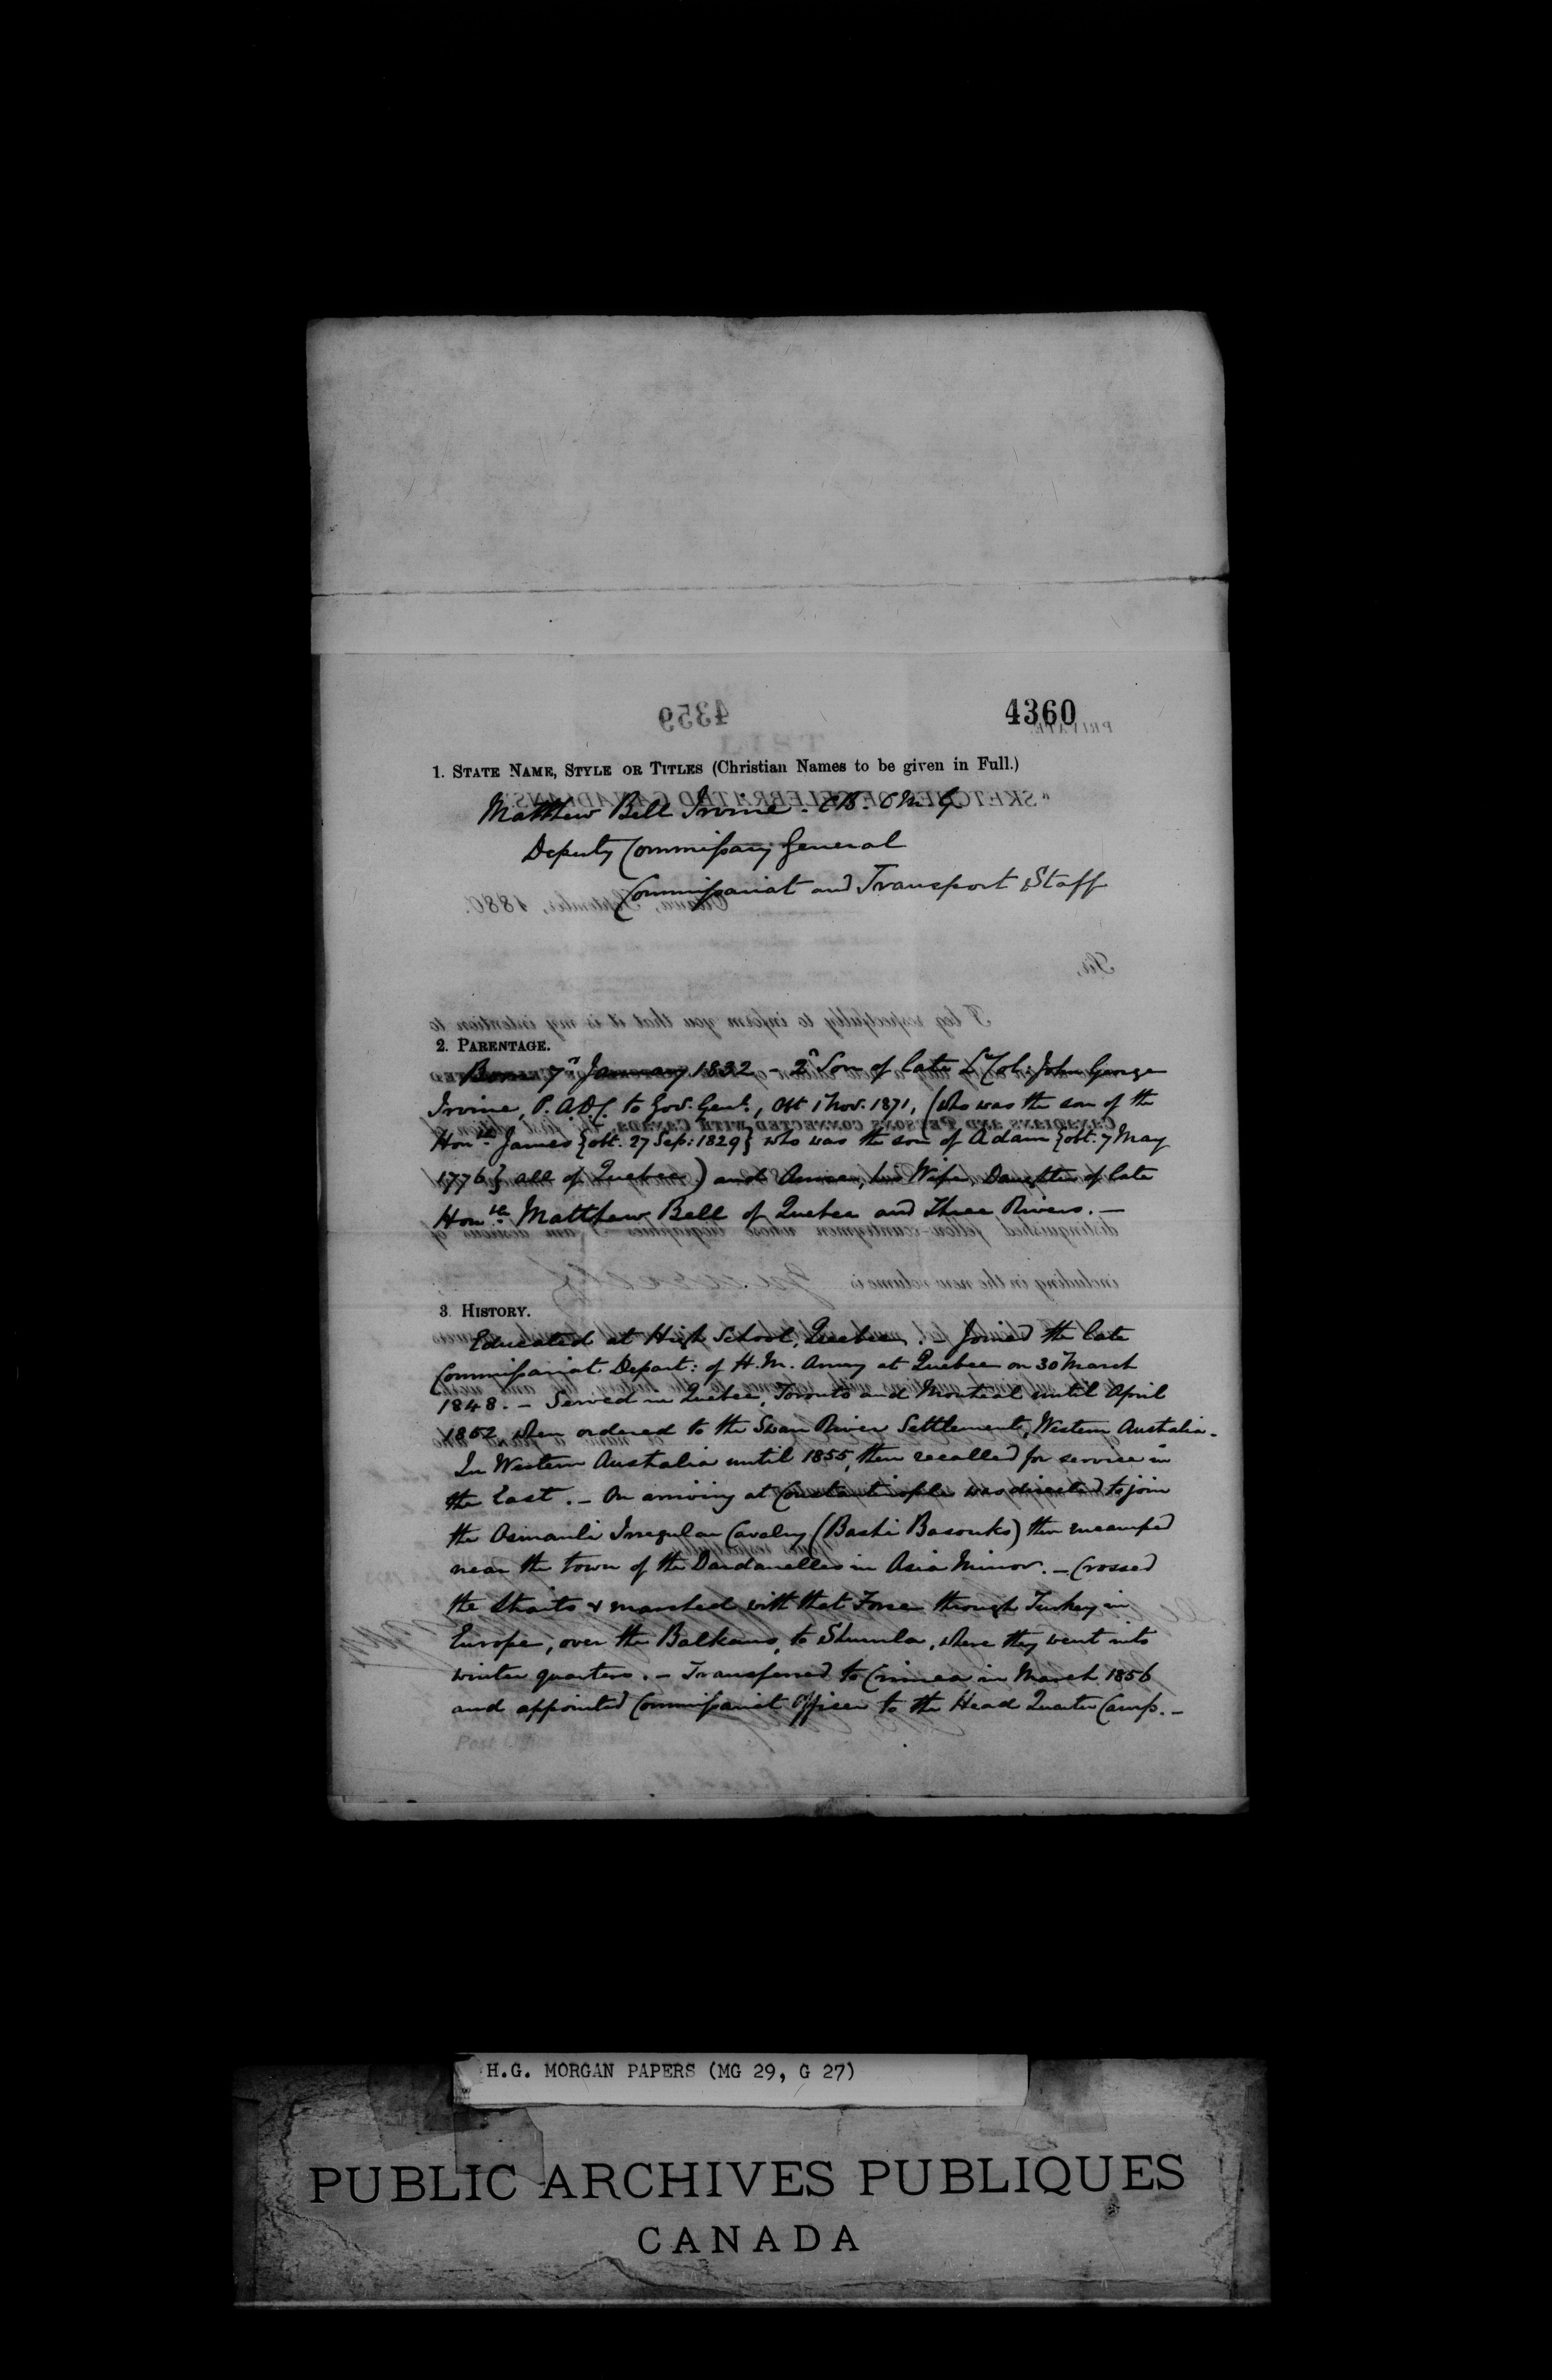 4360
1. STATE NAME, STYLE OR TITLES (Christian Names to be given in Full.)
Matthew Bell Irvine. CB. CMG
Deputy Commissary General
Commissariat and Transport Staff
2. PARENTAGE.
Born 7th January 1832 - 2d Son of late Lt Col: John George
Irvine, P.A.D.C. to Gov. Genl., Obt 1 Nov. 1871, (who was the son of the
Honble James {obt. 27 Sep: 1829} who was the son of Adam {obt. 7 May
1776} all of Quebec) and Anne, his Wife, Daughter of late
Honble Matthew Bell of Quebec and Three Rivers. -
3. HISTORY.
Educated at High School, Quebec. - Joined the late
Commissariat Depart: of H.M. Army at Quebec on 30 March
1848. - Served in Quebec, Toronto and Montreal until April
1852 when ordered to the Swan River Settlement, Western Australia.
In Western Australia until 1855, then recalled for service in
the East. - On arriving at Constantinople was directed to join
the Osmanli Irregular Cavalry (Bashi Basouks) then encamped
near the town of the Dardanelles in Asia Minor. - Crossed
the Straits & marched with that Force through Turkey in
Europe, over the Balkans, to Shumla, where they went into
winter quarters. - Transferred to Crimea in March 1856
and appointed Commissariat Officer to the Head Quarter Camp. -
H.G. MORGAN PAPERS (MG 29, G 27)
PUBLIC ARCHIVES PUBLIQUES
CANADA